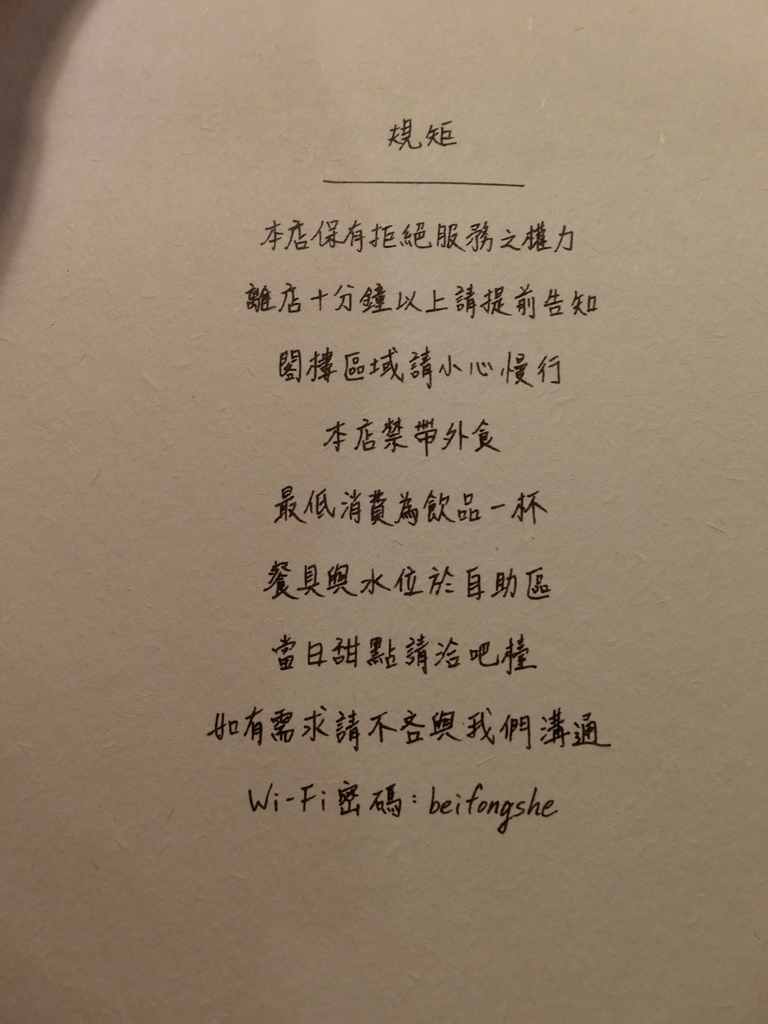 規矩
本店保有拒絕服務之權力
離店十分鐘以上請提前告知
閣樓區域請小心慢行
本店禁帶外食
最低消費為飲品一杯
餐具與水位於自助區
當日甜點請洽吧檯
如有需求請不吝與我們溝通
Wi-Fi密碼：beifongshe